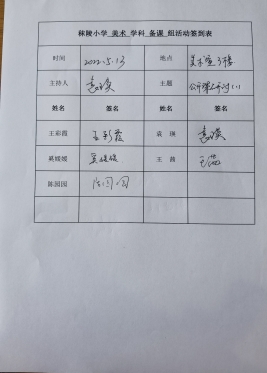 秣陵小学 美术 学科 备课 组活动签到表
时间 2022.5.13 地点 美术室3楼
主持人 袁瑛 主题
姓名 签名 姓名 签名
王彩霞 王彩霞 袁瑛 袁瑛
奚媛媛 奚媛媛 王茜 王茜
陈园园 陈园园